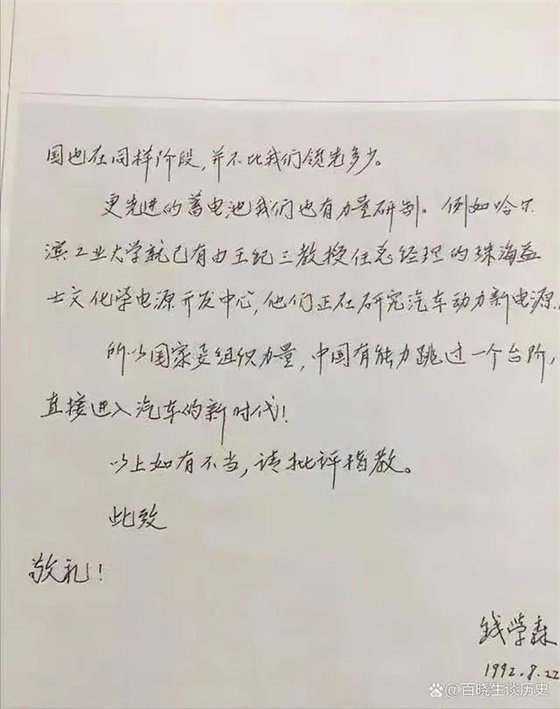 国也在同样阶段,并不比我们领先多少。
更先进的蓄电池我们也有力量研制。例如哈尔
滨工业大学就已有由王纪三教授任总经理的珠海益
士文化学电源开发中心,他们正在研究汽车动力新电源。
所以国家要组织力量,中国有能力跳过一个台阶,
直接进入汽车的新时代!
以上如有不当,请批评指教。
此致
敬礼!
钱学森
1992.8.22
@百晓生谈历史